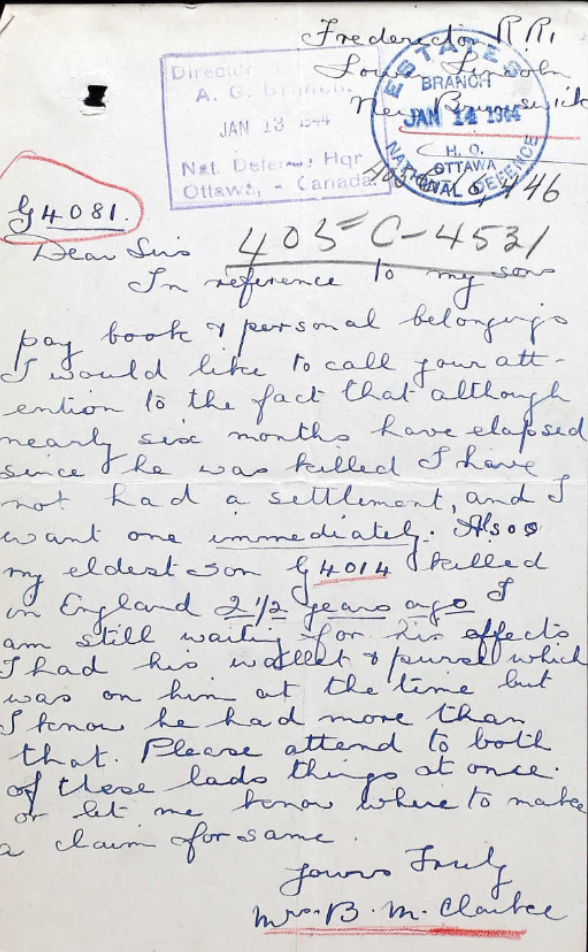 Fredericton R.R.1
Lower Lincoln
New Brunswick
Director
A. G. Branch.
JAN 13 1944
Nat. Defense, Hqr
Ottawa, - Canada.
ESTATES
BRANCH
JAN 14 1944
H. Q.
OTTAWA
NATIONAL DEFENCE
446
G4081.
405 C-4531
Dear Sirs
In reference to my sons
pay book & personal belongings
I would like to call your att-
ention to the fact that although
nearly six months have elapsed
since he was killed I have
not had a settlement, and I
want one immediately. Also
my eldest son G4014 killed
in England 2 1/2 years ago I
am still waiting for his effects
I had his wallet & purse which
was on him at the time but
I know he had more than
that. Please attend to both
of these lads things at once.
or let me know where to make
a claim for same.
Yours Truly
Mrs. B. M. Clarke